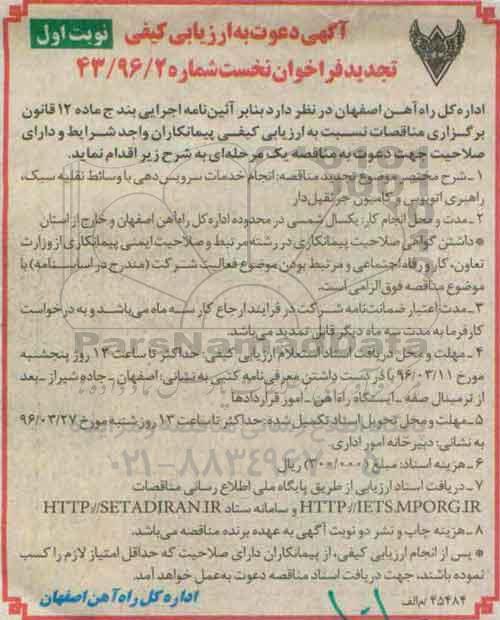 آگهی دعوت به ارزیابی کیفی
نوبت اول
تجدید فراخوان نخست شماره ۴۳/۹۶/۲
اداره کل راه آهن اصفهان در نظر دارد بنابر آئین نامه اجرایی بند ج ماده ۱۲ قانون
برگزاری مناقصات نسبت به ارزیابی کیفی پیمانکاران واجد شرایط و دارای
صلاحیت جهت دعوت به مناقصه یک مرحله‌ای به شرح زیر اقدام نماید.
۱ - شرح مختصر موضوع تجدید مناقصه: انجام خدمات سرویس دهی با وسائط نقلیه سبک،
راهبری اتوبوس و کامیون جرثقیل دار
۲ - مدت و محل انجام کار: یکسال شمسی در محدوده اداره کل راه آهن اصفهان و خارج از استان
* داشتن گواهی صلاحیت پیمانکاری در رشته مرتبط و صلاحیت ایمنی پیمانکاری از وزارت
تعاون، کار و رفاه اجتماعی و مرتبط بودن موضوع فعالیت شرکت (مندرج در اساسنامه) با
موضوع مناقصه فوق الزامی است.
۳ - مدت اعتبار ضمانت نامه شرکت در فرایند ارجاع کار سه ماه می‌باشد و به درخواست
کارفرما به مدت سه ماه دیگر قابل تمدید می‌باشد.
۴ - مهلت و محل دریافت اسناد استعلام ارزیابی کیفی: حداکثر تا ساعت ۱۳ روز پنجشنبه
مورخ ۹۶/۰۳/۱۱ با در دست داشتن معرفی نامه کتبی به نشانی: اصفهان - جاده شیراز - بعد
از ترمینال صفه - ایستگاه راه آهن - امور قراردادها
۵ - مهلت و محل تحویل اسناد تکمیل شده: حداکثر تا ساعت ۱۳ روز شنبه مورخ ۹۶/۰۳/۲۷
به نشانی: دبیرخانه امور اداری.
۶ - هزینه اسناد: مبلغ (۳۰۰/۰۰۰) ریال
۷ - دریافت اسناد ارزیابی از طریق پایگاه ملی اطلاع رسانی مناقصات
HTTP://IETS.MPORG.IR و سامانه ستاد HTTP://SETADIRAN.IR
۸ - هزینه چاپ و نشر دو نوبت آگهی به عهده برنده مناقصه می‌باشد.
* پس از انجام ارزیابی کیفی، از پیمانکاران دارای صلاحیت که حداقل امتیاز لازم را کسب
نموده باشند، جهت دریافت اسناد مناقصه دعوت به عمل خواهد آمد.
۴۵۴۸۴ /م الف
اداره کل راه آهن اصفهان
ParsNamadData
۰۲۱-۸۸۳۴۹۶۷۰